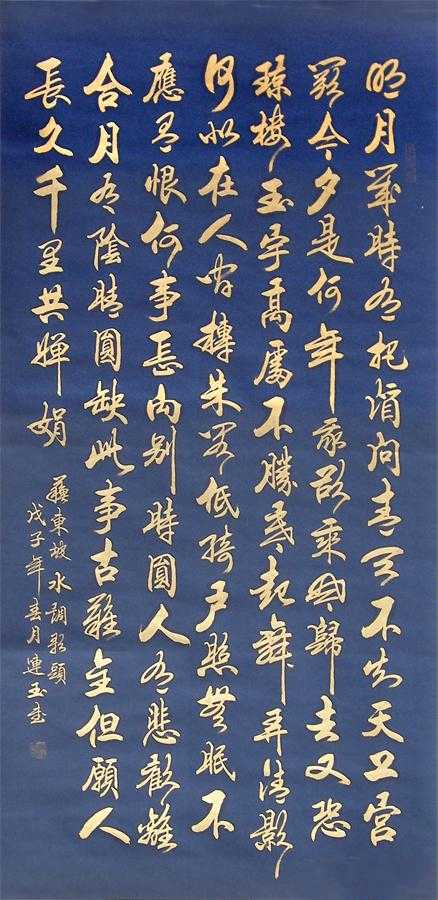 明月幾時有把酒問青天不知天上宫
闕今夕是何年我欲乘風歸去又恐
瓊樓玉宇高處不勝寒起舞弄清影
何似在人間轉朱閣低綺戶照無眠不
應有恨何事長向別時圓人有悲歡離
合月有陰晴圓缺此事古難全但願人
長久千里共嬋娟
蘇東坡水調歌頭
戊子年春月連玉書